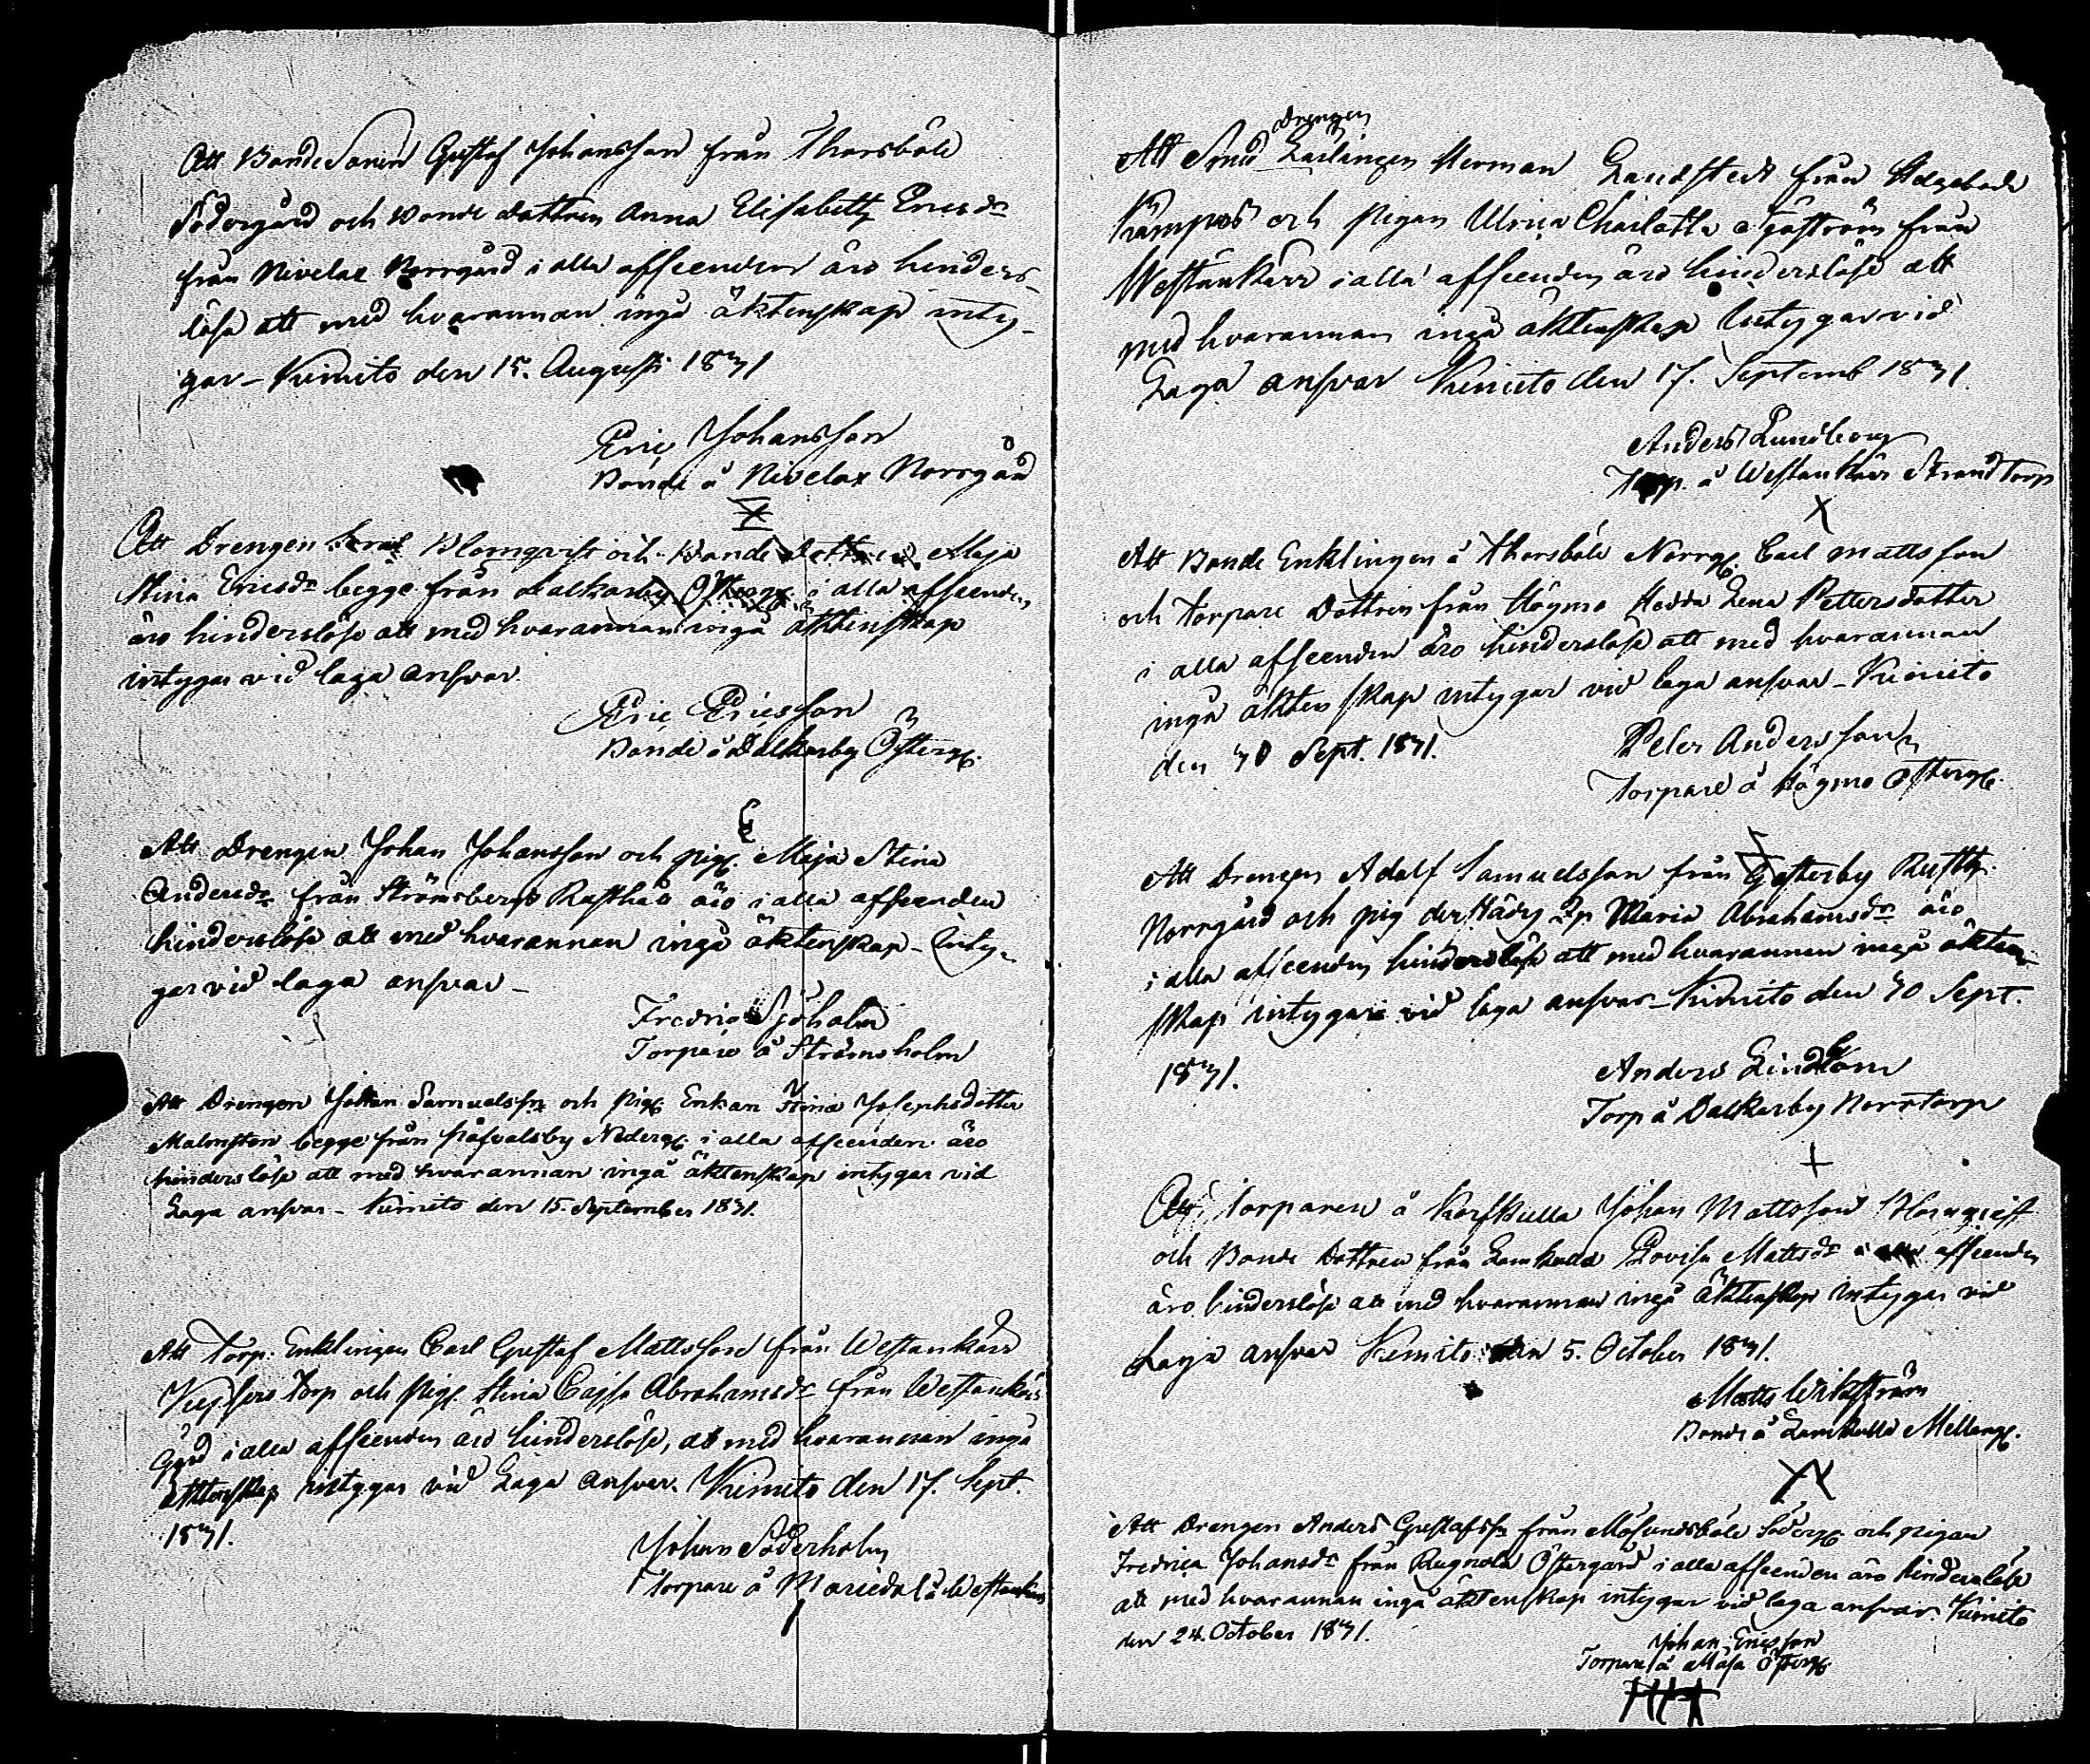 Att Bonde Sonen Gustaf Johansson från Thorsböle
Södergård och Bonde dottren Anna Elisabeth Ericsdr
från Nivelax Norrgård i alla afseenden äro hinders-
lösa att med hvarannan ingå äktenskap inty-
gar – Kimito den 15. Augusti 1831
Eric Johansson
Bonde å Nivelax Norrgård
Att Drengen Blomqvist och Bonde Dottren Maja
Stina Ericsdr begge från Dalkarby Österg. i alla afseenden
äro hinderslösa att med hvarannan ingå äktenskap
intygar vid laga ansvar.
Eric Ericsson
Bonde å Dalkarby Österg.
Att Drengen Johan Johansson och pig. Maja Stina
Andersdr från Strömsberg Rusthåll äro i alla afseenden
hinderslösa att med hvarannan ingå äktenskap – Inty-
gar vid laga ansvar –
Fredric Sjöholm
Torpare å Strömsholm
Att Drengen Johan Samuelsson och Pig. Enkan Stina Josephsdotter
Malmsten begge från Nederg. i alla afseenden äro
hinderslösa att med hvarannan ingå äktenskap intygar vid
Laga ansvar – Kimito den 15. September 1831.
Att Torp. Enklingen Carl Gustaf Mattsson från Westankärr
Torp och Pig. Stina Cajsa Abrahamsdr från Westankärr
Gård i alla afseenden äro hinderslösa, att med hvarannan ingå
äktenskap intygar vid Laga ansvar. Kimito den 17. Sept.
1831.
Johan Söderholm
Torpare å Mariedal å Westankärr
Drengen
Att Smed Lärlingen Herman Landstedt från Helgeboda
Kämpas och Pigan Ulrica Charlotta Sjöström från
Westankärr i alla afseenden äro hinderslösa att
med hvarannan ingå äktenskap Intygar vid
Laga ansvar Kimito den 17. Septemb 1831.
Anders Lundberg
Torp. å Westankärr Strandtorp
Att Bonde Enklingen å Thorsböle Norrg. Carl Mattsson
och Torpare Dottren från Högmo Hedda Lena Pettersdotter
i alla afseenden äro hinderslösa att med hvarannan
ingå äktenskap intygar vid laga ansvar – Kimito
den 30 Sept. 1831.
Peter Andersson
Torpare å Högmo Österg.
Att Drengen Adolf Samuelsson från Gesterby Rusth.
Norrgård och pig Maria Abrahamsdr äro
i alla afseenden hinderslösa att med hvarannan ingå äkten-
skap intygar vid laga ansvar – Kimito den 30 Sept.
1831.
Anders Lindblom
Torp å Dalkarby Norrtorp
Att Torparen å Korfkulla Johan Mattsson Blomqvist
och Bonde Dottren från Lamkulla Lovisa Mattsdr i alla afseenden
äro hinderslösa att med hvarannan ingå Äktenskap intygar vid
Laga ansvar Kimito den 5. October 1831.
Matts Wikström
Bonde å Lamkulla Mellang.
Att Drengen Anders Gustafsson från Mosundsböle Söderg. och pigan
Fredrica Johansdr från Rugnola Östergård i alla afseenden äro hinderslösa
att med hvarannan ingå äktenskap intygar vid laga ansvar. Kimito
den 24. October 1831.
Johan Ericsson
Torpare å Mäsa Österg.